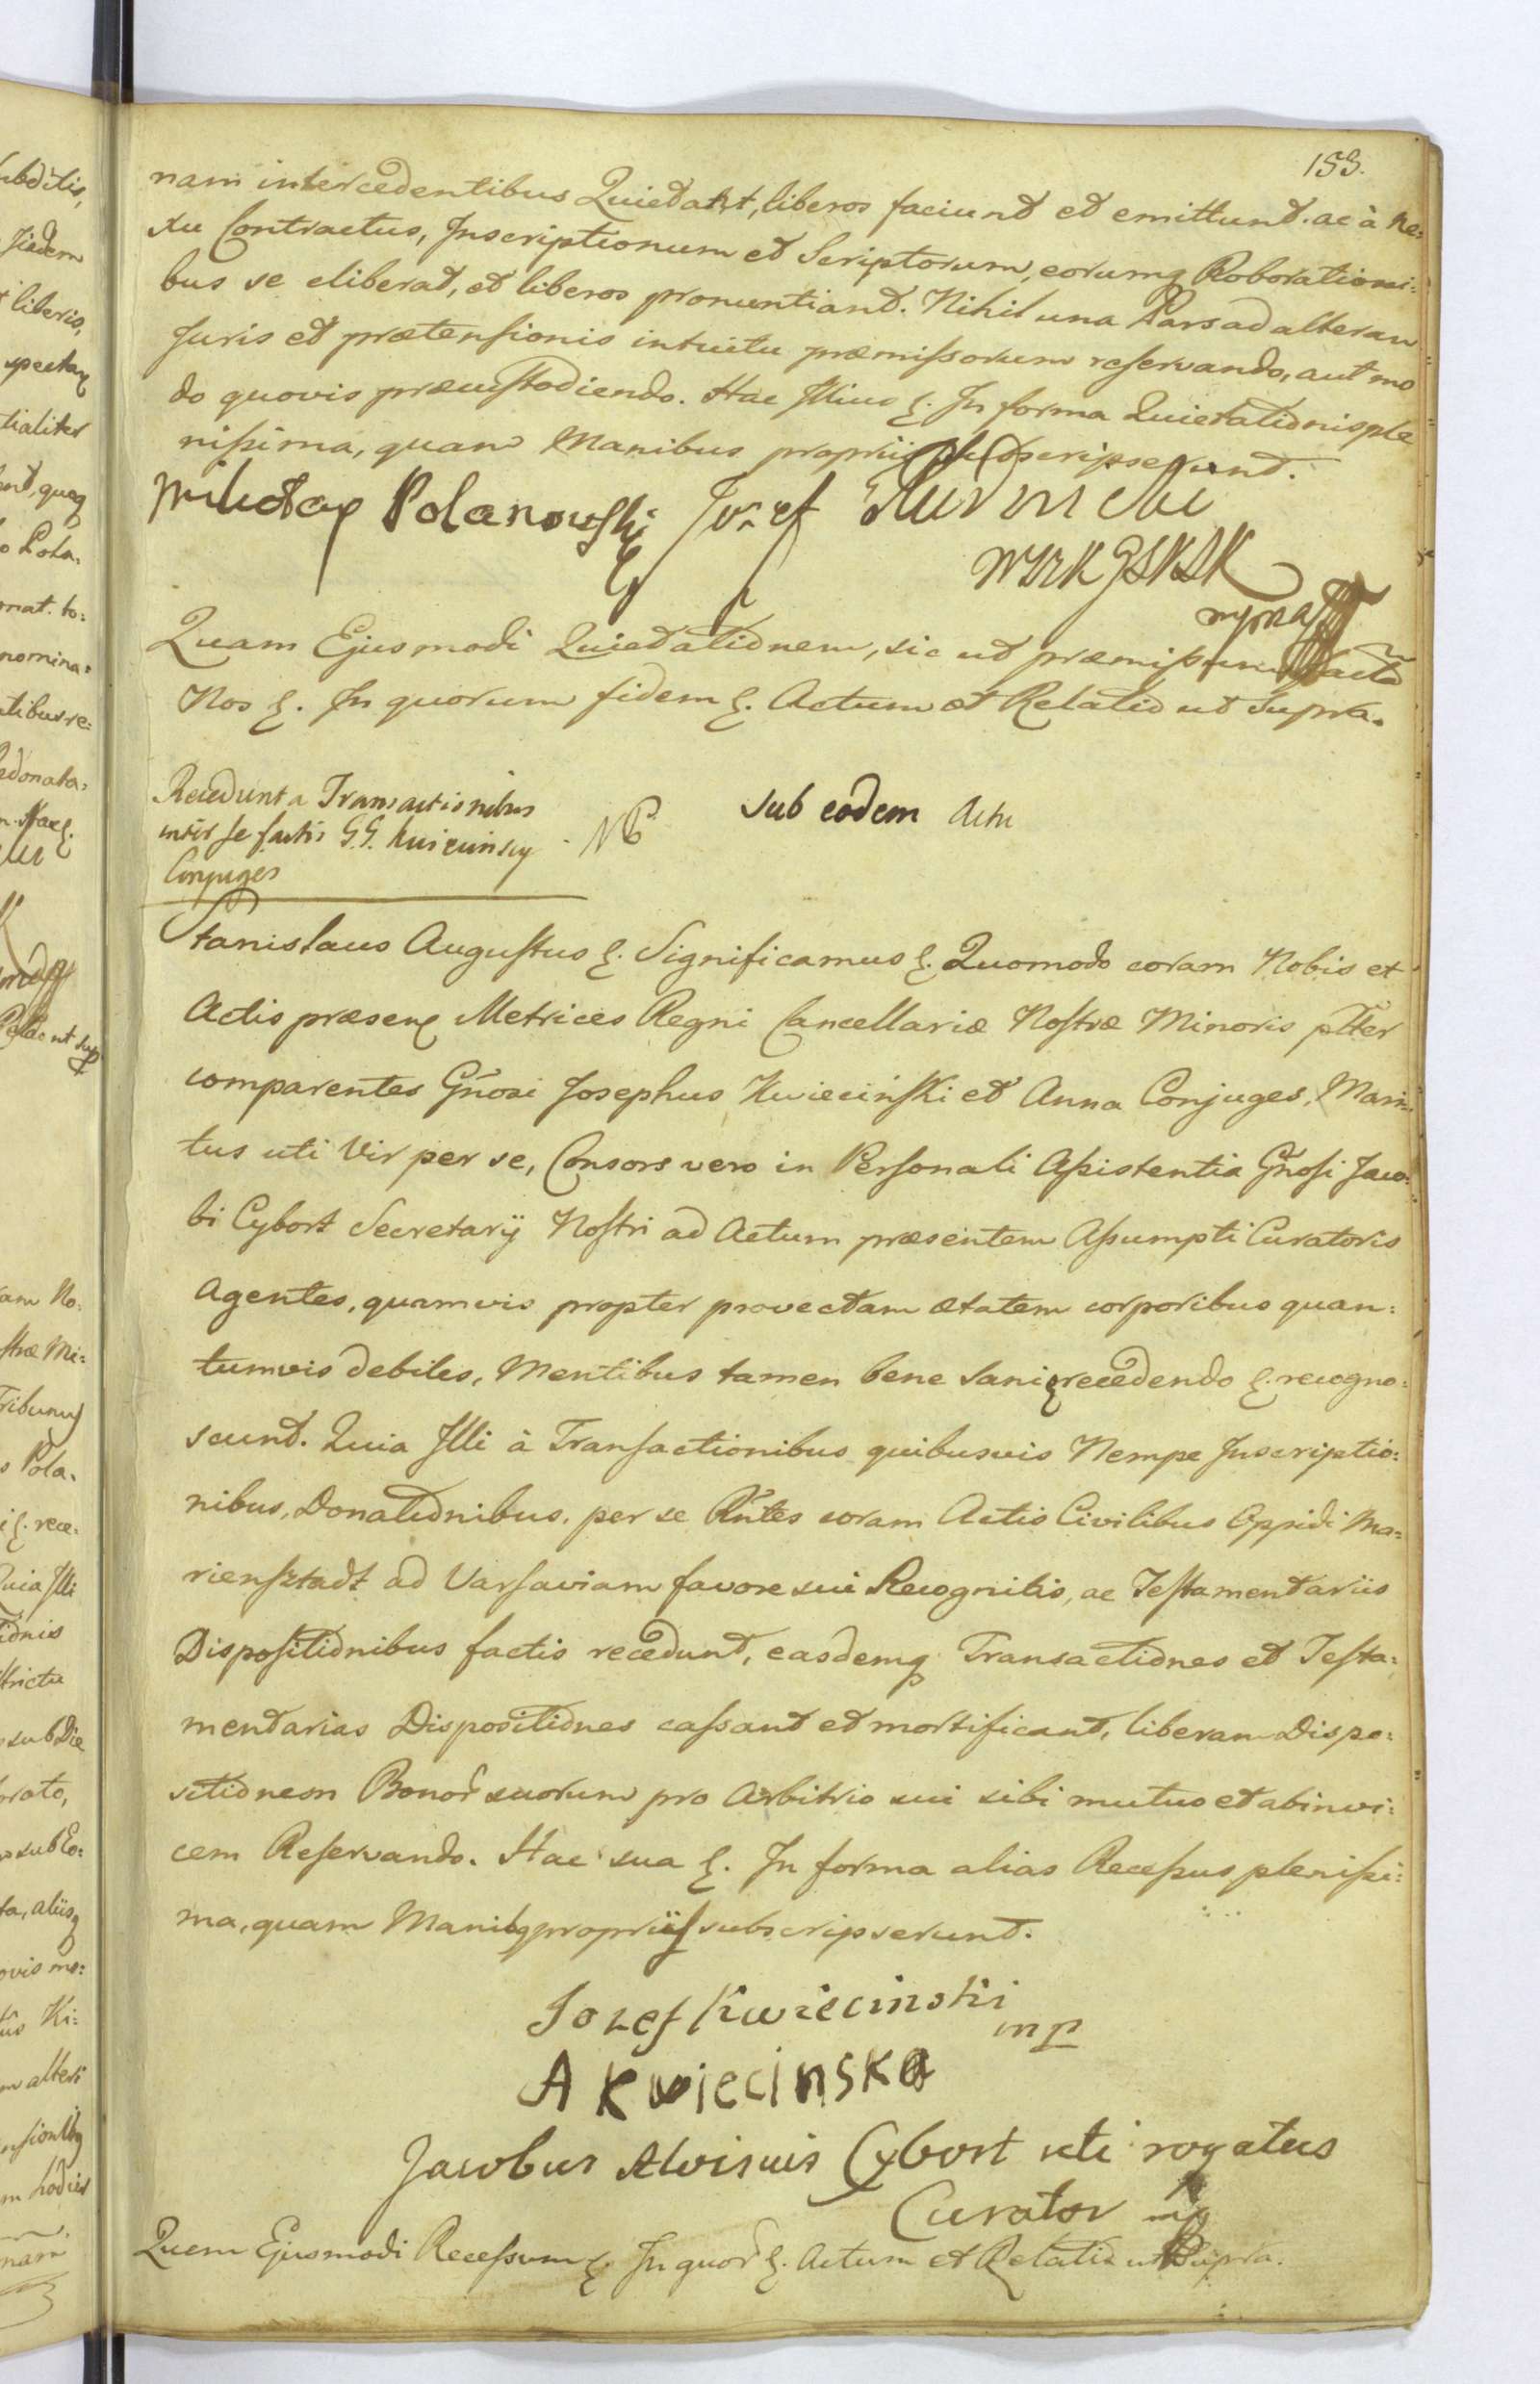 153.
nam intercedentibus Quietant, liberos faciunt et emittunt. ac à ne=
xu Contractus, Inscriptionum et Scriptorum, eorumq Roborationi=
bus se eliberat, et liberos pronuntiant. Nihil una Pars ad alteram
Juris et prætensionis intuitu præmissorum reservando, aut mo
do quovis præcustodiendo. Hac Illius &. In forma Quietationis ple
nissima, quam Manibus propriis subscripserunt.
Mikołay Polanowski Jozef
mpria
Quam Ejusmodi Quietationem, sic ut præmissum facta
Nos &. In quorum fidem &. Actum et Relatio ut Supra.
Recedunt a Transactionibus
inter se factis G.G. Kwiecinscy
Conjuges
Sub eodem Actu
Stanislaus Augustus &. Significamus &. Quomodo coram Nobis et
Actis præsen Metrices Regni Cancellariæ Nostræ Minoris plter
comparentes Gnosi Josephus Kwiecinski et Anna Conjuges, Mari=
tus uti Vir per se, Consors vero in Personali Assistentia Gnosi Jaco=
bi Cybort Secretarij Nostri ad Actum præsentem Assumpti Curatoris
Agentes, quamvis propter provectam ætatem corporibus quan=
tumvis debiles, Mentibus tamen bene sani recedendo &. recogno=
scunt. Quia Illi à Transactionibus quibusvis Nempe Inscriptio=
nibus, Donationibus, per se Rntes coram Actis Civilibus Oppidi Ma=
riensztadt ad Varsaviam favore sui Recognitis, ac Testamentariis
Dispositionibus factis recedunt, easdemq Transactiones et Testa=
mentarias Dispositiones cassant et mortificant, liberam Dispo=
sitionem Bonor suorum pro Arbitrio sui sibi mutuo et abinvi=
cem Reservando. Hac sua &. In forma alias Recessus plenissi=
ma, quam Manibq propriis subscripserunt.
Jozef Kwiecinski
mp
A Kwiecinska
Jacobus Aloisius Cybort uti rogatus
Curator mp
Quem Ejusmodi Recessum &. In quor &. Actum et Relatio ut Supra.